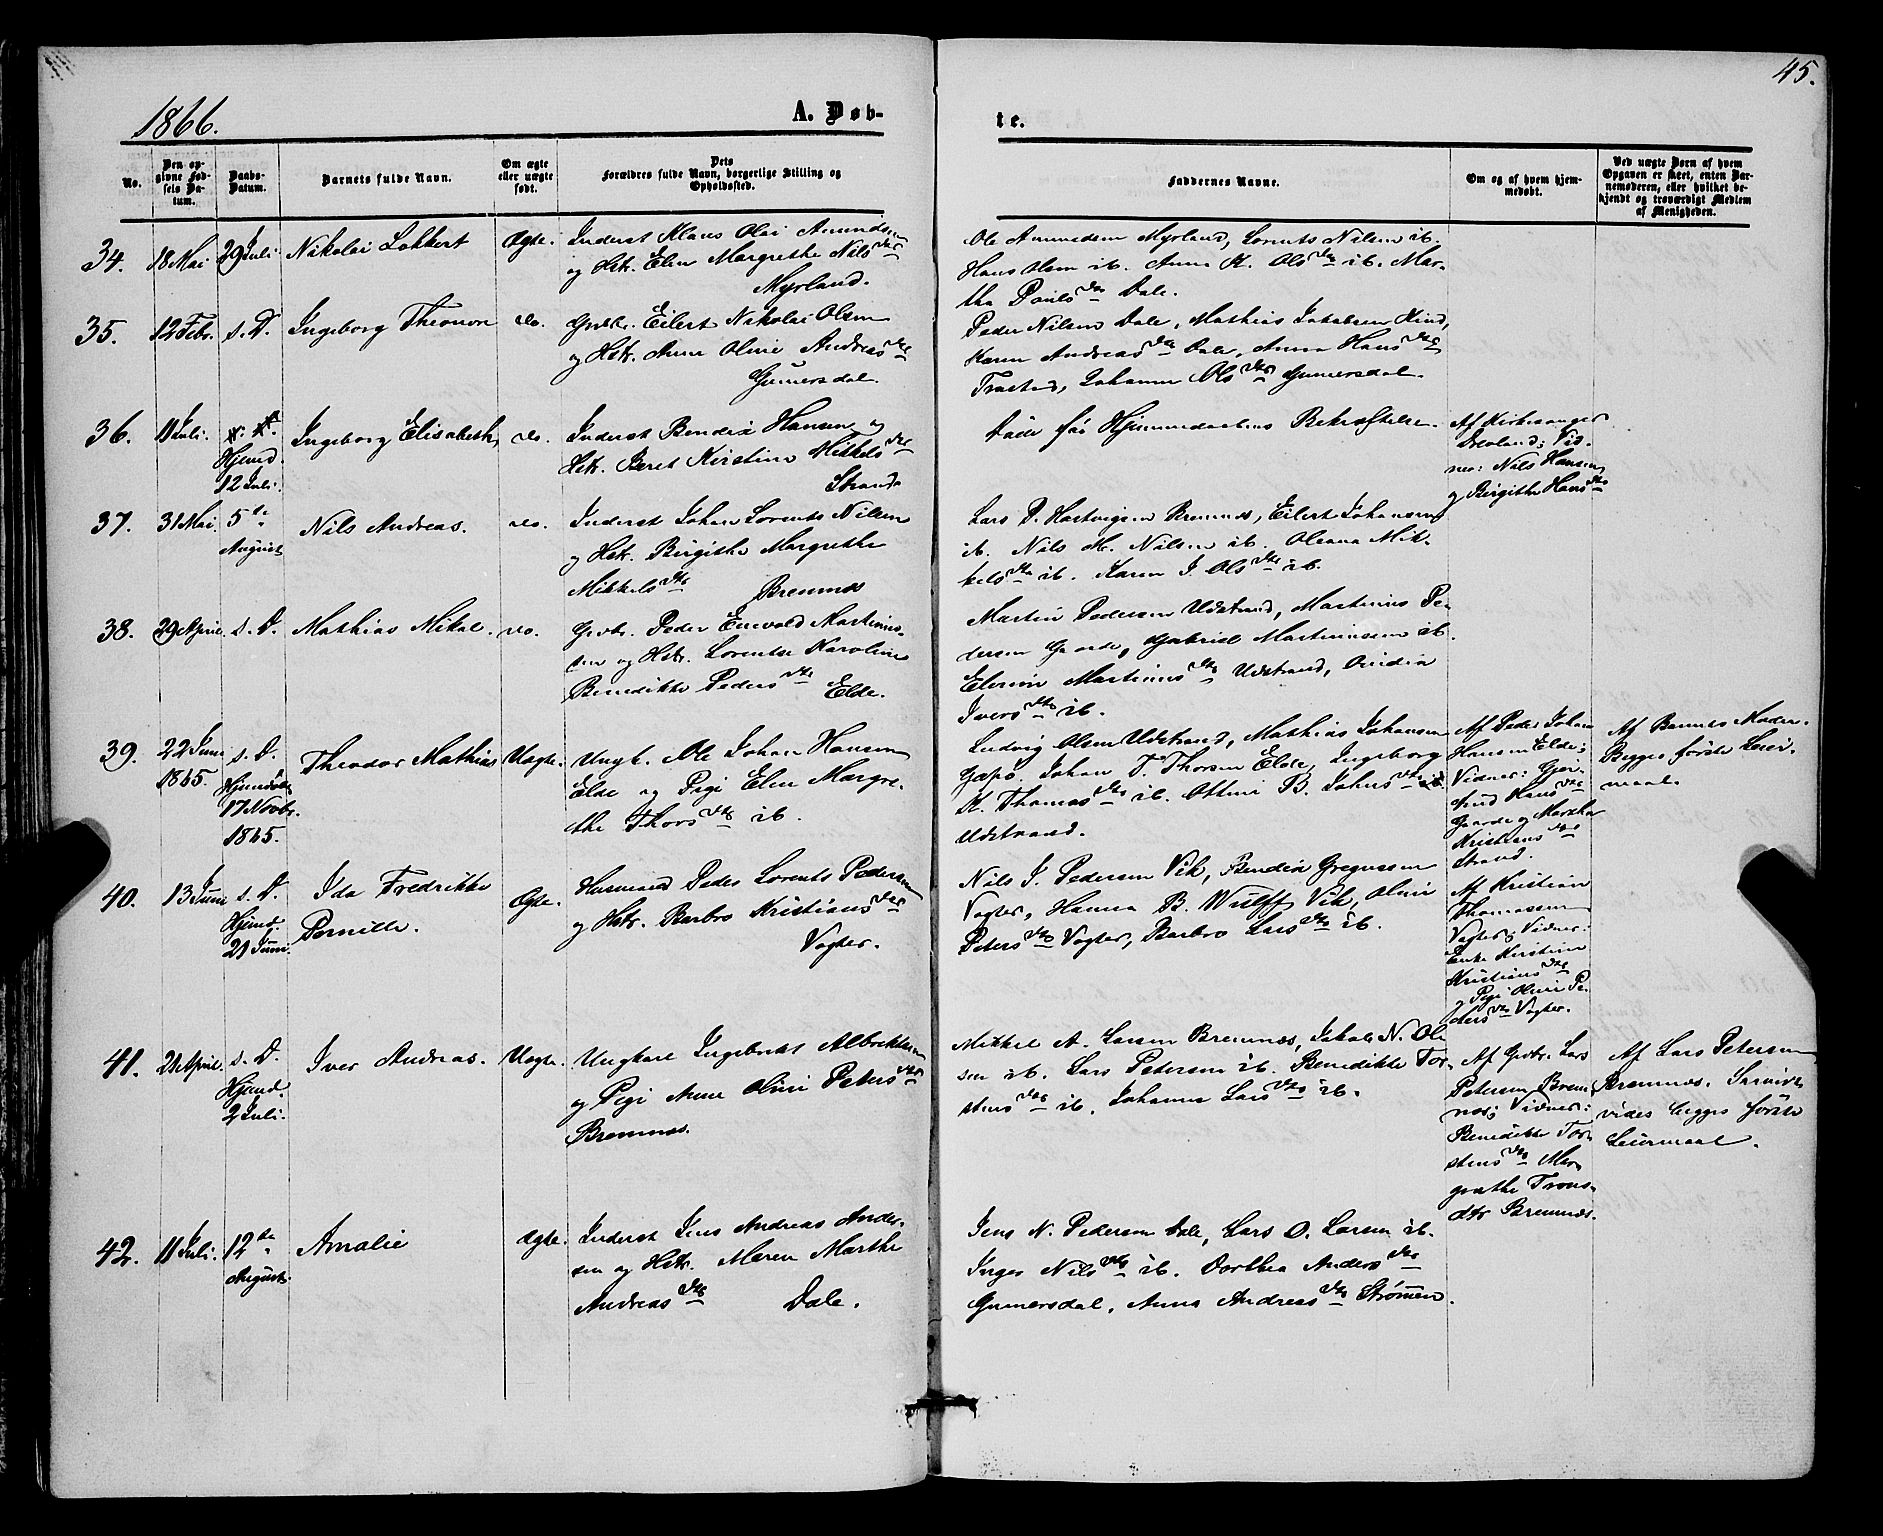 45.
1866.
A. Døb-
te.
No.
Den op-
givne Fød-
sels Da-
tum.
Daabs-
Datum.
Barnets fulde Navn.
Om ægte
eller uægte
født.
Dets
Forældres fulde Navn, borgerlige Stilling og
Opholdssted.
Faddernes Navne.
Om og af hvem hjem-
medøbt.
Ved uægte Børn af hvem
Opgaven er skeet, enten Bar-
nemoderen, eller hvilket be-
kjendt og troværdigt Medlem
af Menigheden.
34.
18 Mai
29 Juli
Nikolai Lokkert
Ægte.
Inderst Klaus Olai Amundsen
og Hstr. Elen Margrethe Nilsdtr
Myrland.
Ole Amundsen Myrland, Lorents Nilsen ib.
Hans Olsen ib. Anne K. Olsdtr ib. Mar-
tha Paulsdtr Dale.
35.
12 Febr.
s. D.
Ingeborg Theonore
do.
Grdbr. Eilert Nikolai Olsen
og Hstr. Anne Oline Andreasdtr
Gunersdal.
Peder Nilsen Dale, Mathias Jakobsen Kind,
Karen Andreasdtr Dale, Anna Hansdtr
Trastad, Johanna Olsdtr Gunersdal.
36.
11 Juli.
Hjemd.
12 Juli.
Ingeborg Elisabeth
do.
Inderst Bendix Hansen og
Hstr. Beret Kirstine Mikkelsdtr
Strand
døde før Hjemmedaabens Bekræftelse.
Af Kirkesanger
Vid-
ner: Nils Hansen
og Birgithe Hansdtr
37.
31 Mai
5te
August
Nils Andreas.
do.
Inderst Johan Lorents Nilsen
og Hstr. Birgithe Margrethe
Mikkelsdtr Bremnæs
Lars P. Hartvigsen Bremnæs, Eilert Johansen
ib. Nils M. Nilsen ib. Oleana Mik-
kelsdtr ib. Karen J. Olsdtr ib.
38.
29 April
s. D.
Mathias Mikal.
do.
Grdbr. Peder Enevold Martinus-
sen og Hstr. Lorentse Karoline
Benedikte Pedersdtr Elde.
Martin Pedersen Udstrand, Martinus Pe-
dersen Gaarde, Gabriel Martinussen ib.
Elerine Martinusdtr Udstrand, Ovidia
Iversdtr ib.
39.
22 Juni
1865.
s. D.
Hjemdøbt
17 Novbr.
1865.
Theodor Mathias
Uægte.
Ungk. Ole Johan Hansen
Elde og Pige Elen Margre-
the Thorsdtr ib.
Ludvig Olsen Udstrand, Mathias Johansen
Gapø. Johan T. Thorsen Elde, Ingeborg
K. Thomasdtr ib. Ottine B. Johnsdtr
Udstrand.
Af Peder Johan
Hansen Elde;
Vidner: Gjer-
trud Hansdtr
Gaarde og Martha
Kristiansdtr
Strand.
Af Barnets Moder.
Begges første Leier-
maal.
40.
13 Juni
s. D.
Hjemd.
21 Juni.
Ida Fredrikke
Pernille.
Ægte.
Husmand Peder Lorents Pedersen
og Hstr. Barbro Kristiansdtr
Vogter.
Nils J. Pedersen Vik, Bendix Gregussen
Vogter, Hanna B. Wulff Vik, Oline
Petersdtr Vogter, Barbro Larsdtr ib.
Af Kristian
Thomassen
Vogter; Vidner:
Enke Kirstine
Kristiansdtr
og Pige Oline Pe-
dersdtr Vogter.
41.
21 April.
s. D.
Hjemd.
2 Juli.
Iver Andreas.
Uægte.
Ungkarl Ingebrikt Albriktsen
og Pige Anne Oline Petersdtr
Bremnæs.
Mikkel A. Larsen Bremnæs, Jakob N. Ol-
sen ib. Lars Petersen ib. Benedikte Tor-
stensdtr ib. Johanna Larsdtr ib.
Af Grdbr. Lars
Petersen Brem-
næs; Vidner:
Benedikte Tor-
stensdtr Mar-
grethe Trons-
dtr Bremnæs.
Af Lars Petersen
Bremnæs. Saavidt
vides begges første
Leiermaal.
42.
11 Juli.
12te
August.
Amalie
Ægte.
Inderst Jens Andreas Ander-
sen og Hstr. Maren Marthe
Andreasdtr Dale.
Jens N. Pedersen Dale, Lars O. Larsen ib.
Inger Nilsdtr ib. Dorthea Andersdtr
Gunersdal, Anna Andreasdtr Strømen.